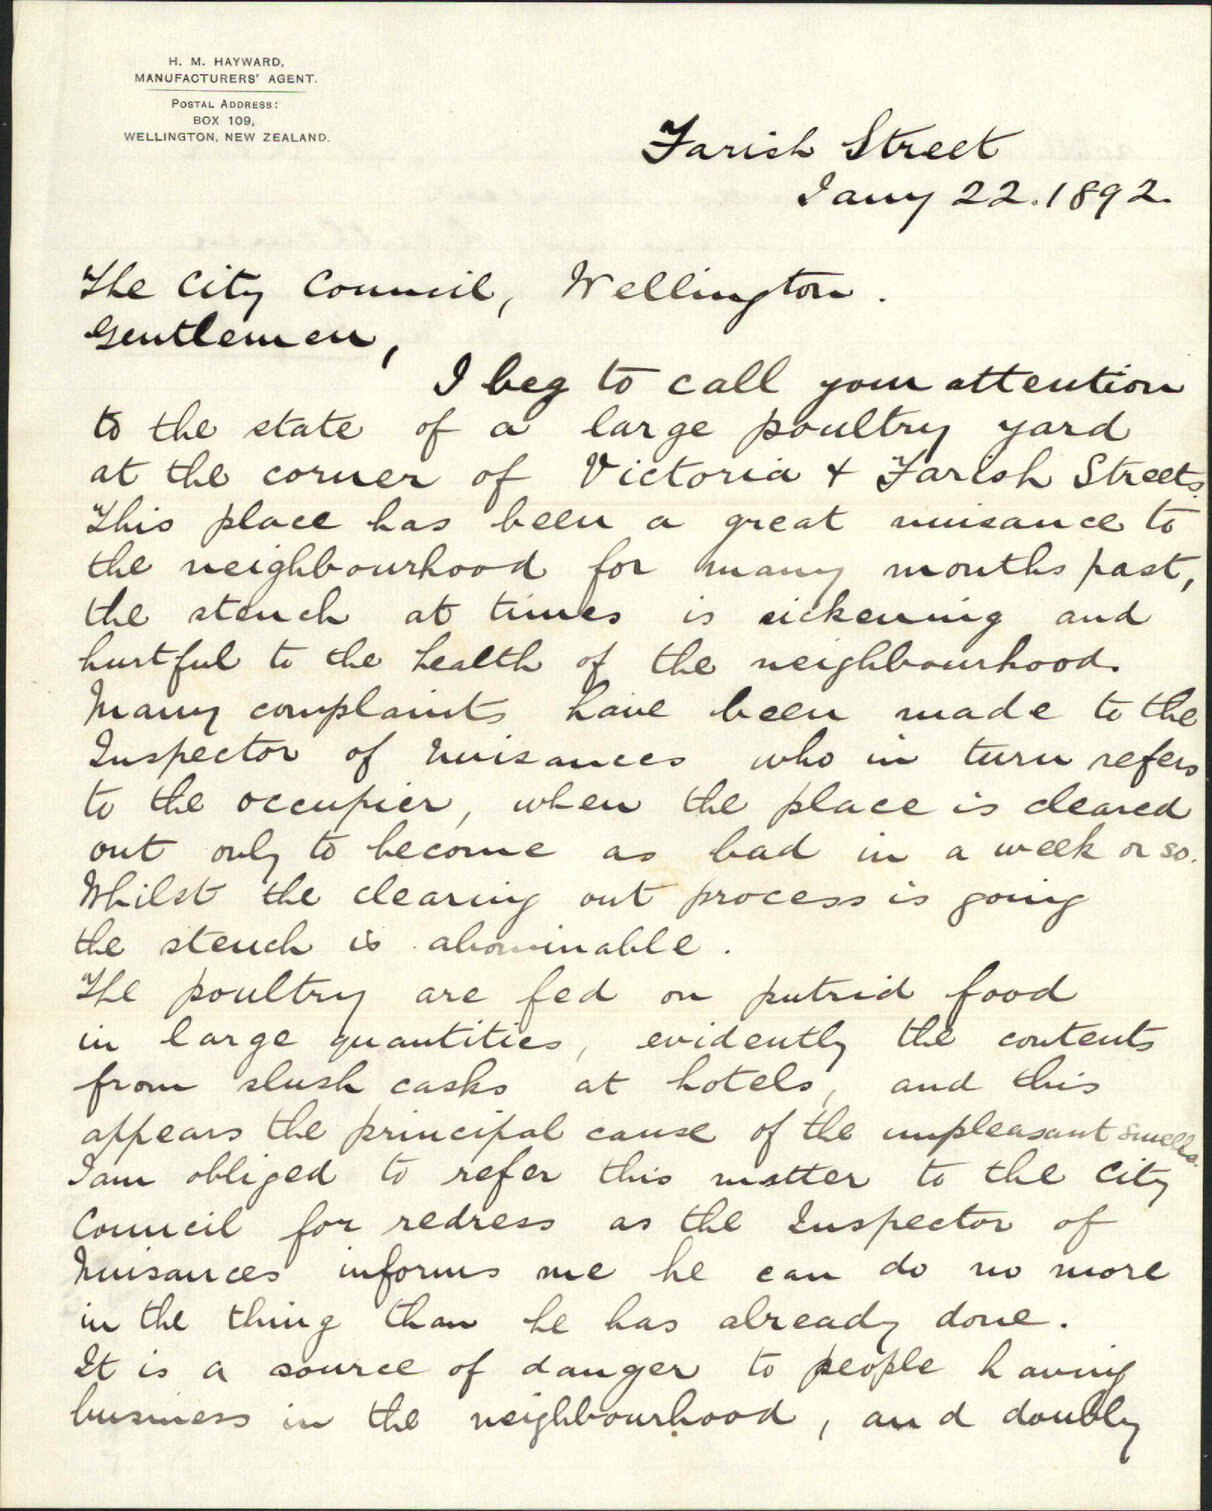 H. M. HAYWARD,
MANUFACTURERS' AGENT.
POSTAL ADDRESS:
BOX 109,
WELLINGTON, NEW ZEALAND.
Farish Street
Jany 22. 1892.
The City Council, Wellington.
Gentlemen,
I beg to call your attention
to the state of a large poultry yard
at the corner of Victoria + Farish Streets.
This place has been a great nuisance to
the neighbourhood for many months past,
the stench at times is sickening and
hurtful to the health of the neighbourhood.
Many complaints have been made to the
Inspector of Nuisances who in turn refers
to the occupier, when the place is cleared
out only to become as bad in a week or so.
Whilst the clearing out process is going
the stench is abominable.
The poultry are fed on putrid food
in large quantities, evidently the contents
from slush casks at hotels, and this
appears the principal cause of the unpleasant smells.
I am obliged to refer this matter to the City
Council for redress as the Inspector of
Nuisances informs me he can do no more
in the thing than he has already done.
It is a source of danger to people having
business in the neighbourhood, and doubly